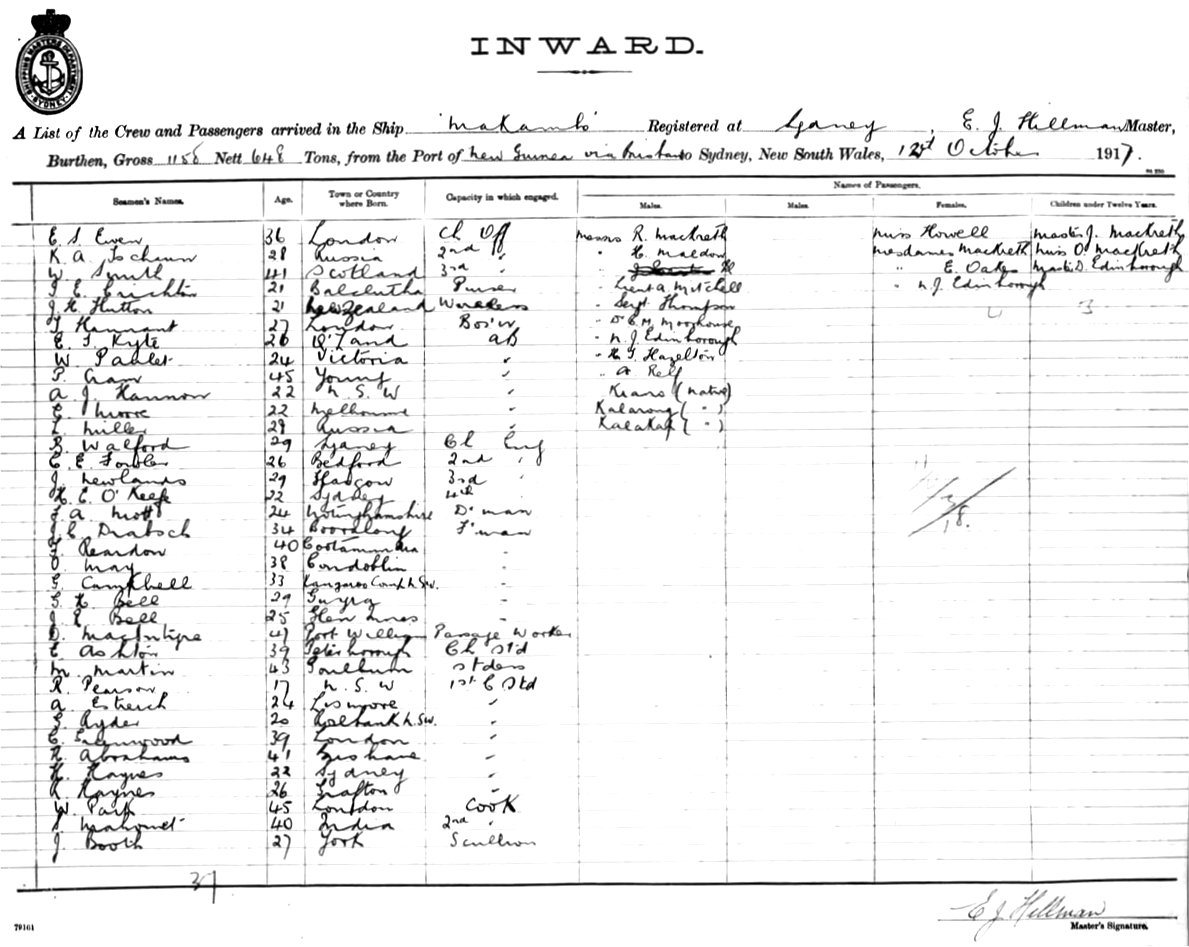 SHIPPING MASTERS DEPARTMENT SYDNEY
INWARD.
A List of the Crew and Passengers arrived in the Ship 'Makambo' Registered at Sydney, E. J. Hillman Master,
Burthen, Gross 1158 Nett 648 Tons, from the Port of New Guinea via Brisbane to Sydney, New South Wales, 1st October 1917.
Names of Passengers.
Seamen's Names. Age. Town or Country where Born. Capacity in which engaged. Males. Males. Females. Children under Twelve Years.
E. S. Ewen 36 London Ch Off Messrs R. MacKreth Miss Howell Master J. MacKreth
K. A. 28 Russia 2nd " " H. Maldon Mesdames MacKreth Miss O. MacKreth
W. Smith 41 Scotland 3rd " " E. Oakes Master D. Edinborough
E. Crichton 21 Balclutha Purser " Lieut A. Mitchell " N. J. Edinborough
J. H. Hutton 21 New Zealand Wireless " Sergt Thompson
T. Hannant 27 London Bos'n " Dr C. M. Moorhouse
E. J. Kyte 26 Q'Land AB " N. J. Edinborough
W. Pallet 24 Victoria " " H. G. Hazelton
P. Cram 45 Young " " A. Relf
A. J. Hannon 22 N. S. W " Kiano (native)
E. Moore 22 Melbourne " Kalarong ( " )
L. Miller 29 Russia " Kalakap ( " )
B. Walford 29 Sydney Ch Eng
C. E. Fowler 26 Bedford 2nd "
J. Newlands 29 Glasgow 3rd "
H. E. O'Keefe 22 Sydney 4th "
F. A. Mott 24 Nottinghamshire D'man
J. C. Drabsch 34 Booralong F'man
F. Reardon 40 Cootamundra "
O. May 38 Condoblin "
G. Campbell 33 Kangaroo Camp N.S.W. "
G. H. Bell 29 Guyra "
J. E. Bell 25 Glen Innes "
D. MacIntyre 49 Fort William Passage Worker
E. Ashton 39 Peterborough Ch Std
M. Martin 43 Goulburn Stdess
R. Pearson 17 N. S. W 1st C Std
A. Estreich 24 Lismore "
G. Ryder 20 Rosebank N.S.W. "
C. Greenwood 39 London "
R. Abrahams 41 Brisbane "
H. Haynes 22 Sydney "
R. Haynes 26 Grafton "
W. Park 45 London Cook
S. Mahomet 40 India 2nd "
J. Booth 27 York Scullion
37
E J Hillman
Master's Signature.
79161